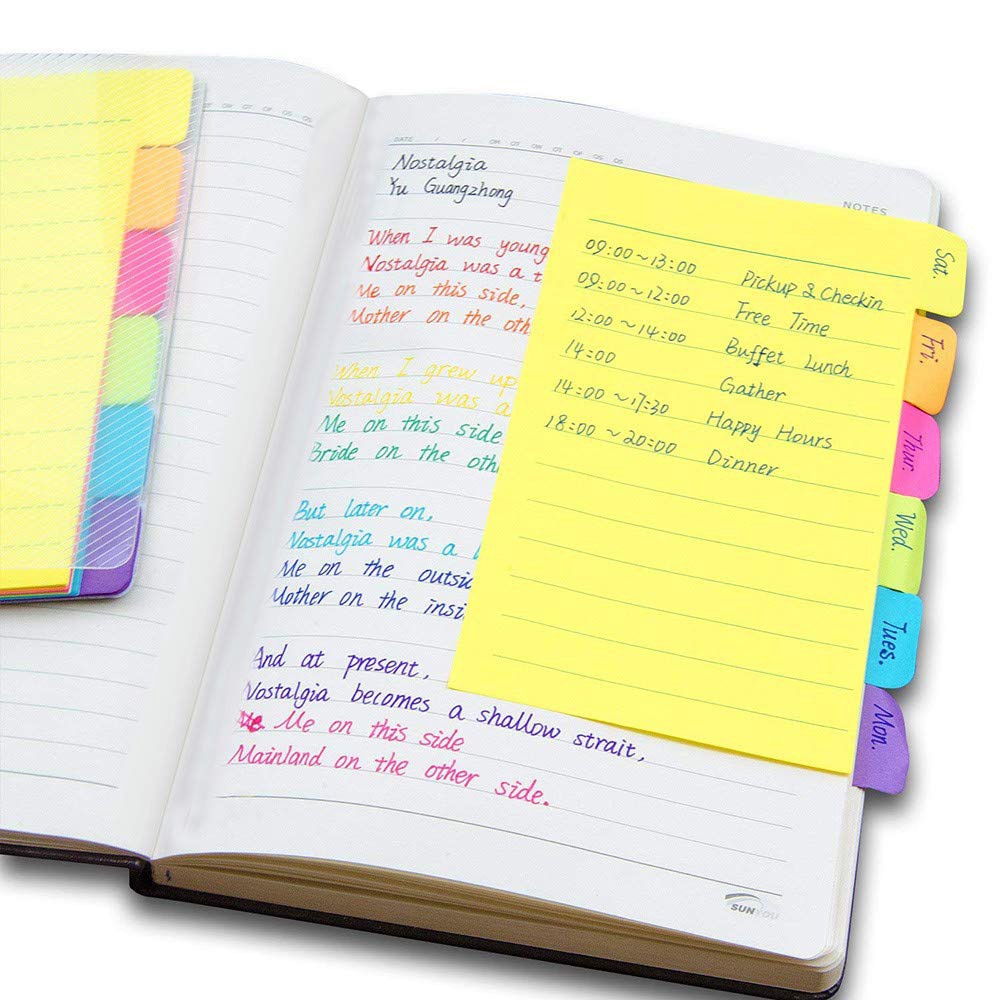 DATE / /
NOTES
Nostalgia
Yu Guangzhong
When I was young
Nostalgia was a t
Me on this side,
Mother on the oth
When I grew up
Nostalgia was a
Me on this side
Bride on the oth
But later on,
Nostalgia was a l
Me on the outsid
Mother on the insi
And at present,
Nostalgia becomes a shallow strait,
Me on this side
Mainland on the other side.
09:00~13:00 Pickup & Checkin
09:00~12:00 Free Time
12:00~14:00 Buffet Lunch
14:00 Gather
14:00~17:30 Happy Hours
18:00~20:00 Dinner
Sat.
Fri.
Thur.
Wed.
Tues.
Mon.
SUNYOU